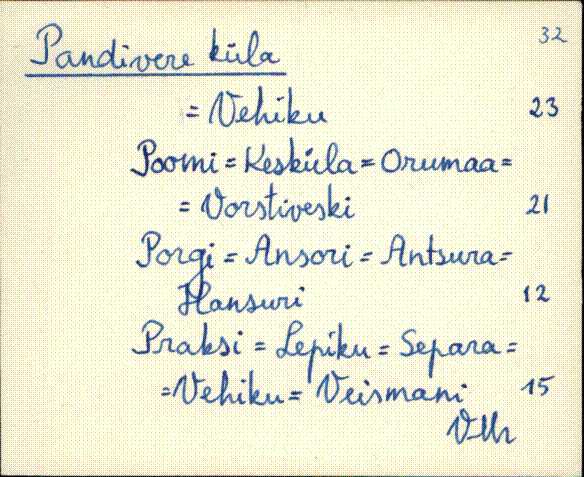 32
Pandivere küla
= Vehiku 23
Poomi = Kesküla = Orumaa =
= Vorstiveski 21
Porgi = Ansori = Antsura =
Hansuri 12
Praksi = Lepiku = Separa =
= Vehiku = Veismani 15